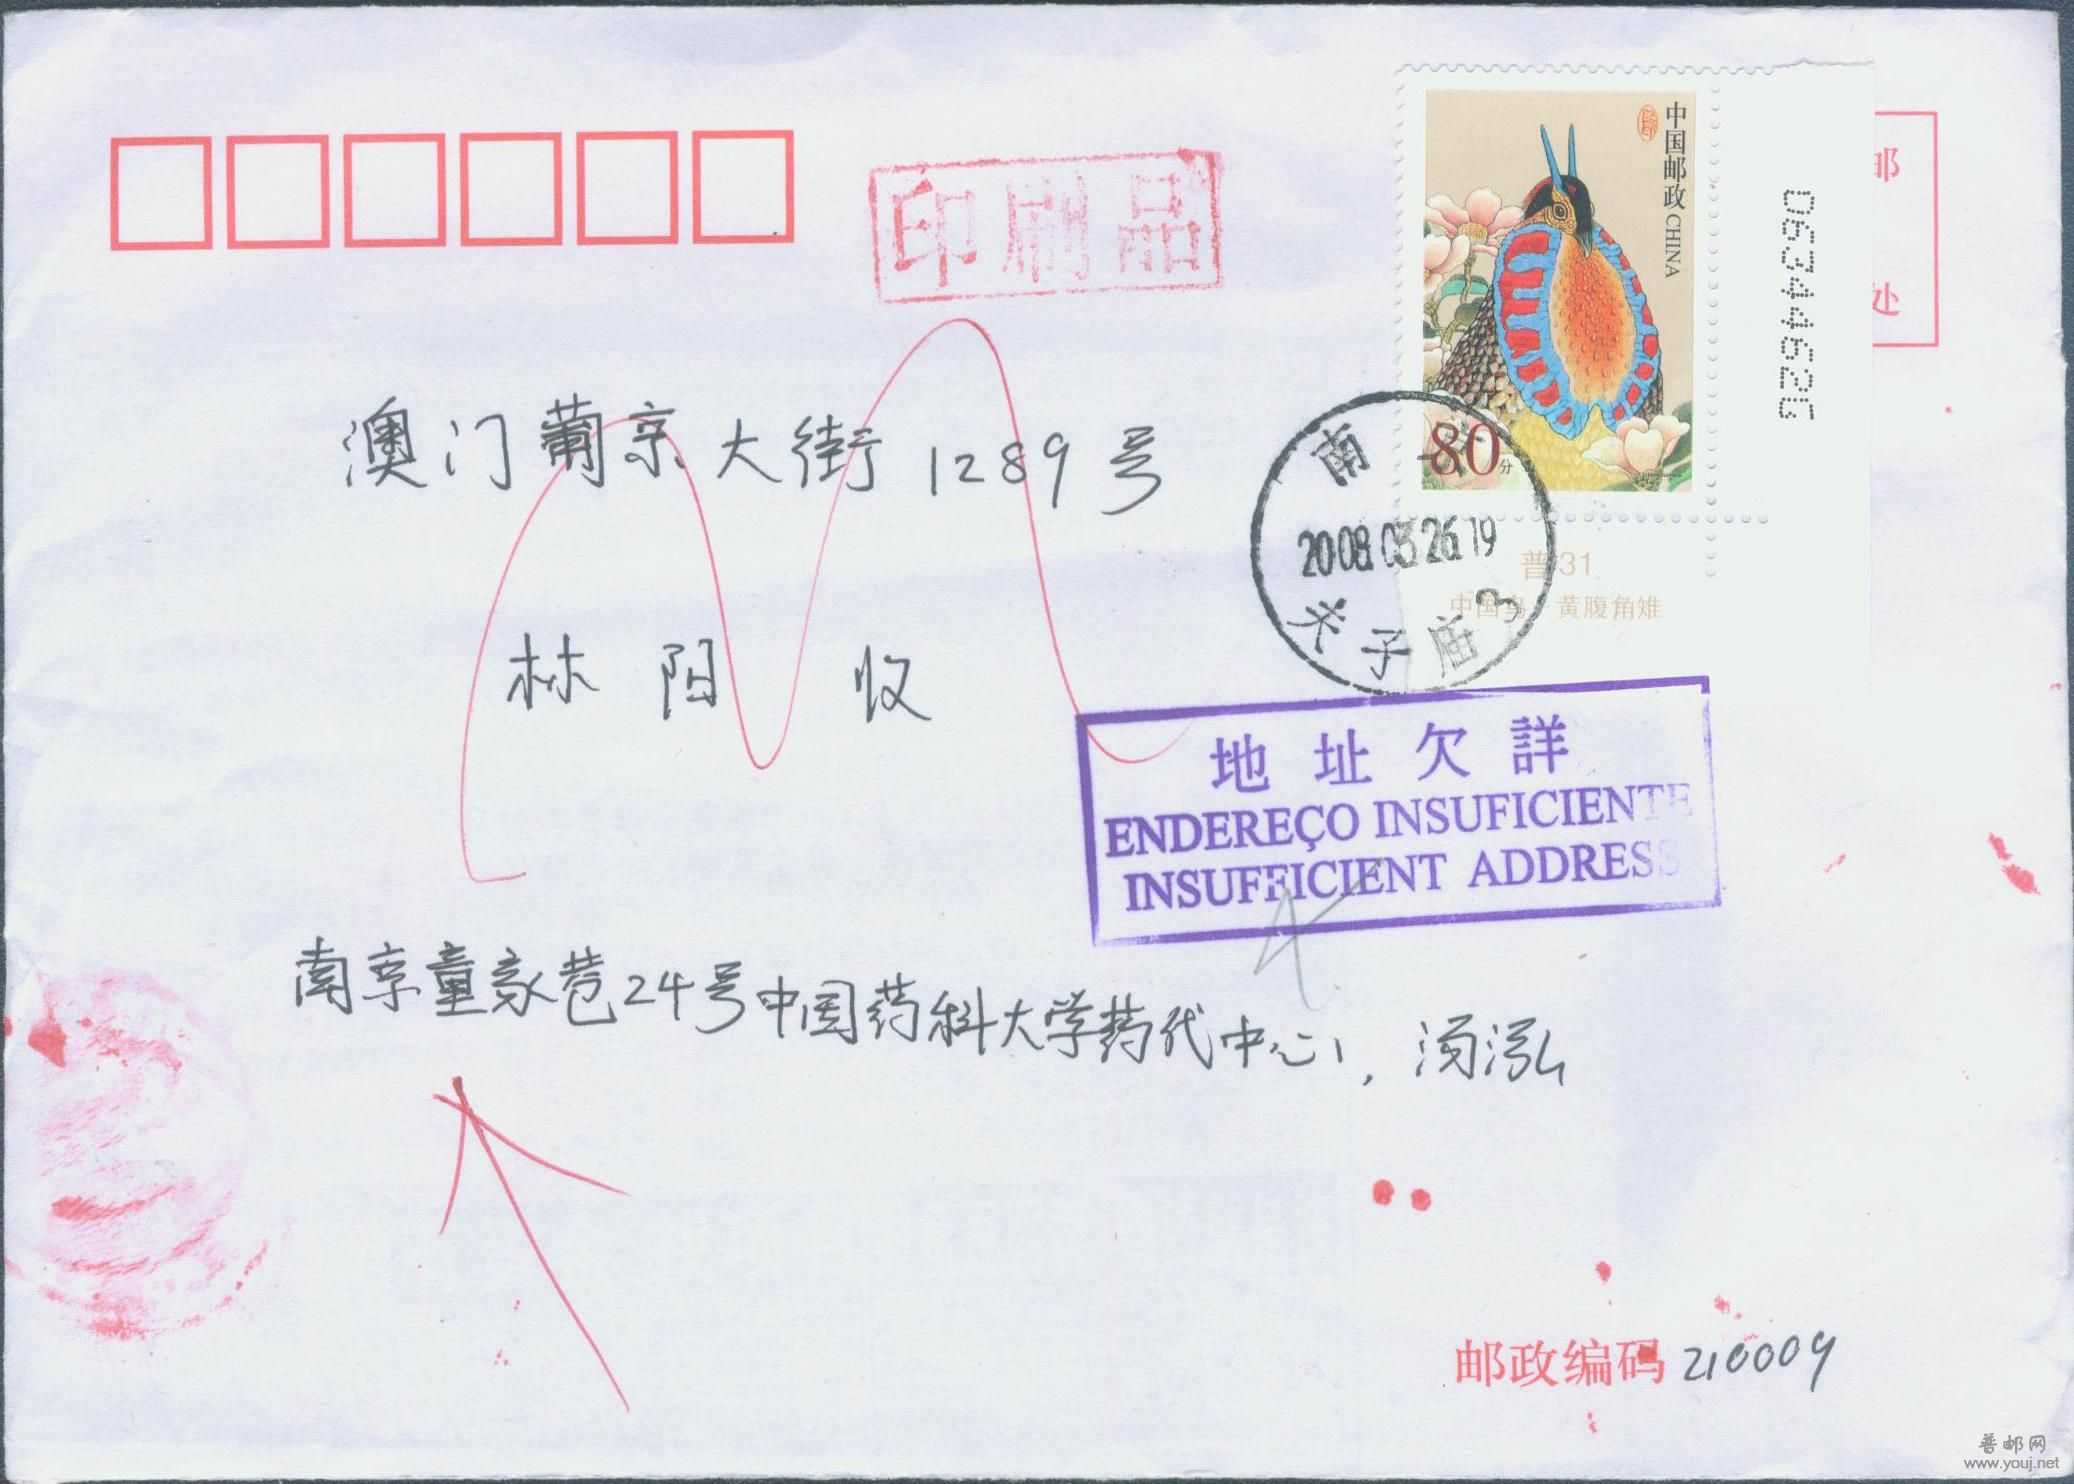 印刷品
中国邮政 CHINA
80分
06744620
邮
处
澳门葡京大街1289号
南京
2008.03.26.19
夫子庙3
普31
中国鸟-黄腹角雉
林阳 收
地址欠詳
ENDEREÇO INSUFICIENTE
INSUFFICIENT ADDRESS
南京童家巷24号中国药科大学药代中心, 汤泓
邮政编码 210009
普邮网
www.youj.net